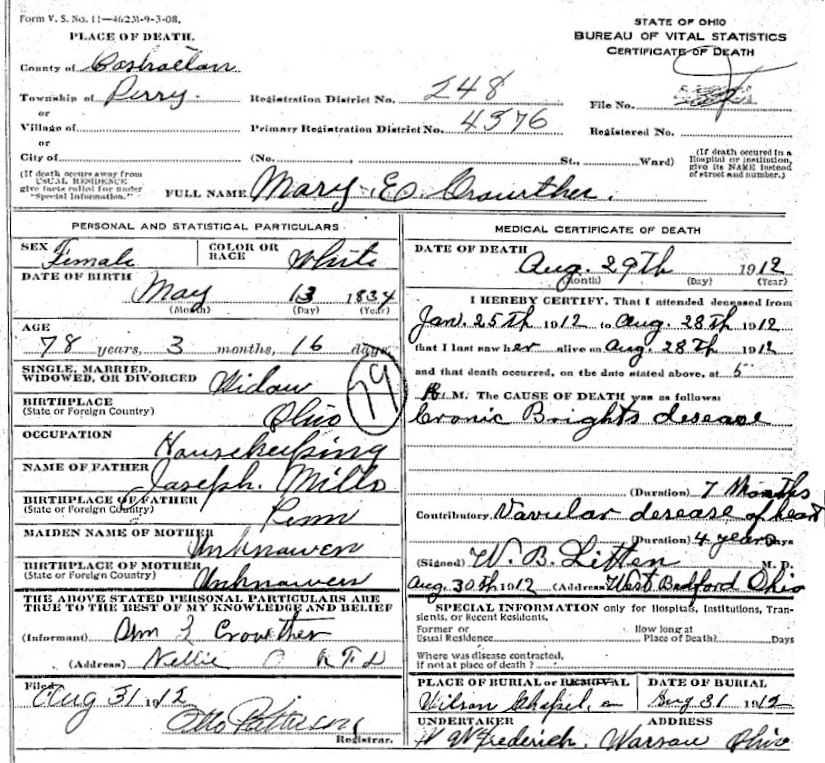 Form V. S. No. 11—462M-9-3-08.
PLACE OF DEATH.
STATE OF OHIO
BUREAU OF VITAL STATISTICS
CERTIFICATE OF DEATH
County of Coshocton
Township of Perry Registration District No. 248 File No.
or
Village of Primary Registration District No. 4576 Registered No.
or
City of (No. St., Ward)
(If death occured in a Hospital or institution, give its NAME instead of street and number.)
(If death occurs away from USUAL RESIDENCE give facts called for under "Special Information.")
FULL NAME Mary E. Crowther.
PERSONAL AND STATISTICAL PARTICULARS
SEX Female COLOR OR RACE White
DATE OF BIRTH
May 13 1834
(Month) (Day) (Year)
AGE
78 years, 3 months, 16 days
SINGLE, MARRIED, WIDOWED, OR DIVORCED Widow
79
BIRTHPLACE
(State or Foreign Country) Ohio
OCCUPATION Housekeeping
NAME OF FATHER Joseph. Mills
BIRTHPLACE OF FATHER
(State or Foreign Country) Penn
MAIDEN NAME OF MOTHER Unknawen
BIRTHPLACE OF MOTHER
(State or Foreign Country) Unknawen
THE ABOVE STATED PERSONAL PARTICULARS ARE
TRUE TO THE BEST OF MY KNOWLEDGE AND BELIEF
(Informant) Crowther
(Address) Nellie O RFD
Filed Aug 31 1912
Otto
Registrar.
MEDICAL CERTIFICATE OF DEATH
DATE OF DEATH
Aug. 29th 1912
(Month) (Day) (Year)
I HEREBY CERTIFY, That I attended deceased from
Jan. 25th 1912 to Aug. 28th 1912
that I last saw her alive on Aug. 28th 1912
and that death occurred, on the date stated above, at 5
M. The CAUSE OF DEATH was as follows:
Cronic Brights desease
(Duration) 7 Months
Contributory Vavular desease of heart
(Duration) 4 years Days
(Signed) W. B. Litten M. D.
Aug. 30th 1912 (Address) West Bedford Ohio
SPECIAL INFORMATION only for Hospitals, Institutions, Transients, or Recent Residents.
Former or Usual Residence How long at Place of Death? Days
Where was disease contracted,
if not at place of death?
PLACE OF BURIAL or REMOVAL DATE OF BURIAL
Wilson Chapel, Aug 31 1912
UNDERTAKER ADDRESS
Frederich. Warsaw Ohio